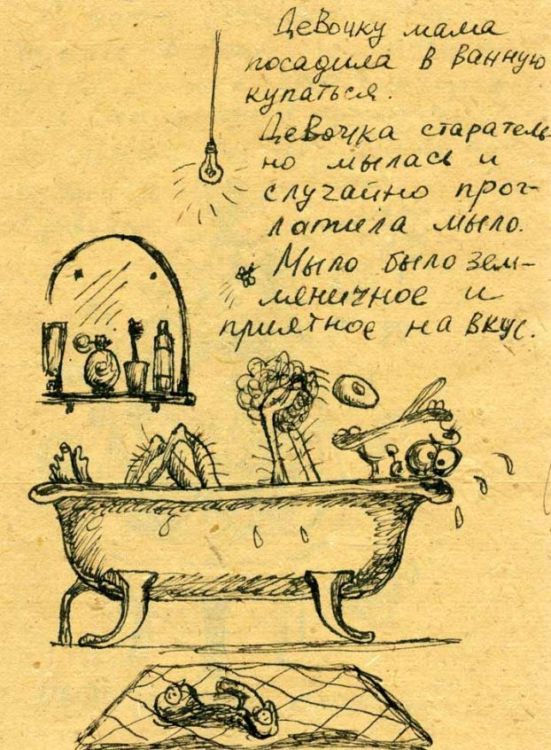 Девочку мама
посадила в ванную
купаться.
Девочка старатель-
но мылась и
случайно прог-
лотила мыло.
Мыло было зем-
ляничное и
приятное на вкус.